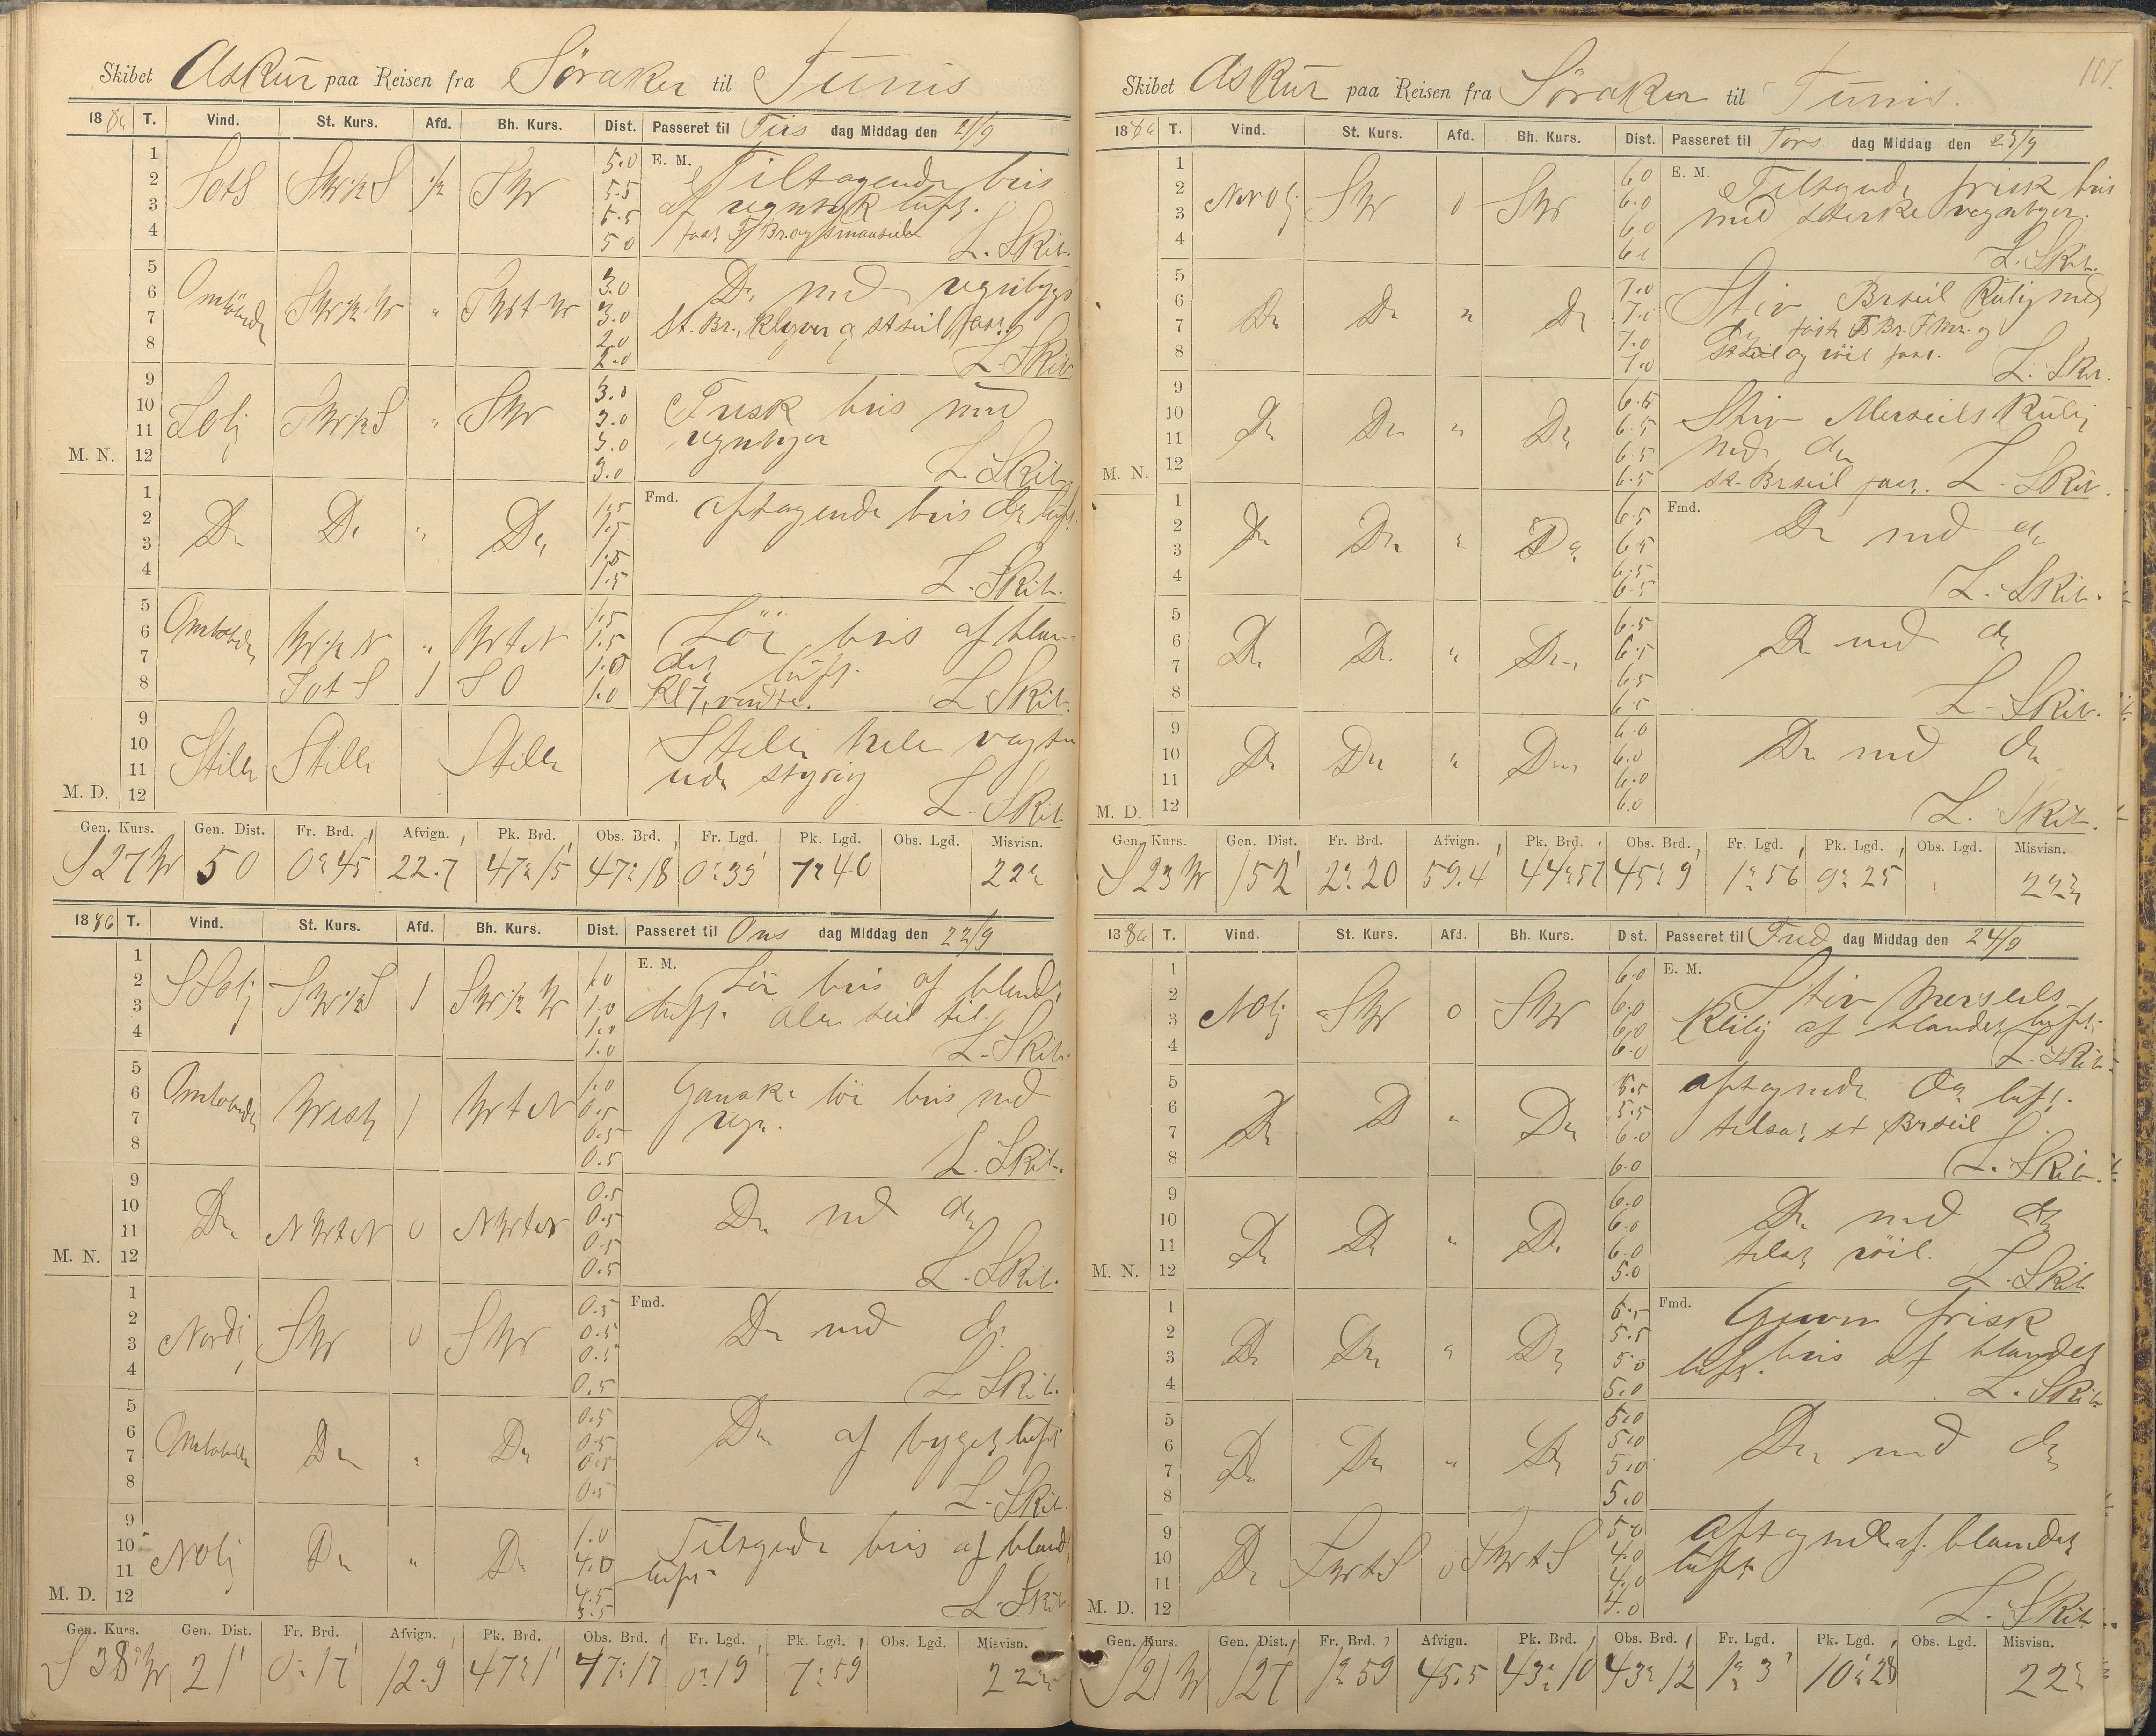 Skibet Askur paa Reisen fra Söraker til Tunis
1886 T. Vind. St. Kurs. Afd. Bh. Kurs. Dist. Passeret til Tirs dag Middag den 21/9
1 2 3 4 SotS SW½S ½ SW 5.0 5.5 5.5 5.0 E. M. Tiltagende bris
af regntyk luft.
L. Skib.
5 6 7 8 Omlöbende SW½W " 3.0 3.0 2.0 2.0 Do med regnbyger
St. Br., Klyver og stseil fast.
L. Skib
9 10 11 12 M. N. SW½S " SW 3.0 3.0 3.0 3.0 Frisk bris med
regnbyger
L. Skib
1 2 3 4 Do Do " Do 1.5 1.5 1.5 1.5 Fmd. Aftagende bris do luft.
L. Skib.
5 6 7 8 Omlöbende W½N " WtN 1.5 1.5 1.0 1.0 Löi bris af blan-
det luft.
SotS 1 SO Kl 7, vendte. L. Skib.
9 10 11 12 M. D. Stille Stille Stille Stille hele vagten
uden styring
L. Skib
Gen. Kurs. Gen. Dist. Fr. Brd. Afvign. Pk. Brd. Obs. Brd. Fr. Lgd. Pk. Lgd. Obs. Lgd. Misvisn.
S 27 W 50 0° 45' 22.7 47° 15' 47° 18 0° 33' 7° 40 22°
1886 T. Vind. St. Kurs. Afd. Bh. Kurs. Dist. Passeret til Ons dag Middag den 22/9
1 2 3 4 SW½S 1 SW½W 1.0 1.0 1.0 1.0 E. M. Löi bris af blandet
luft. Alle seil til.
L. Skib.
5 6 7 8 Omlöbende West 1 WtN 1.0 0.5 0.5 0.5 Ganske löi bris med
regn.
L. Skib.
9 10 11 12 M. N. Do NWtN 0 NWtN 0.5 0.5 0.5 0.5 Do med do
L. Skib.
1 2 3 4 Nordl SW 0 SW 0.5 0.5 0.5 0.5 Fmd. Do med do
L. Skib.
5 6 7 8 Omlöbende Do " Do 0.5 0.5 0.5 0.5 Do af byget luft
L. Skib.
9 10 11 12 M. D. NOlj Do " Do 1.0 4.0 4.5 3.5 Tiltagende bris af blandet
luft
L. Skib
Gen. Kurs. Gen. Dist. Fr. Brd. Afvign. Pk. Brd. Obs. Brd. Fr. Lgd. Pk. Lgd. Obs. Lgd. Misvisn.
S 38° W 21' 0° 17' 12.9 47° 1' 47° 17 0° 19 7° 59 22°
107.
Skibet Askur paa Reisen fra Söraker til Tunis.
1886 T. Vind. St. Kurs. Afd. Bh. Kurs. Dist. Passeret til Tors dag Middag den 23/9
1 2 3 4 SW 0 SW 6.0 6.0 6.0 E. M. Tiltagende frisk bris
med sterke regnbyger.
L. Skib.
5 6 7 8 Do Do " Do 7.0 7.0 7.0 7.0 Stiv Brseil Kuling med
do
stseil og röil fast.
L. Skib.
9 10 11 12 M. N. Do Do " Do 6.5 6.5 6.5 6.5 Stiv Merseils Kuling
med do
St. Brseil fast. L. Skib.
1 2 3 4 Do Do " Do 6.5 6.5 6.5 6.5 Fmd. Do med do
L. Skib.
5 6 7 8 Do Do " Do 6.5 6.5 6.5 6.5 Do med do
L. Skib.
9 10 11 12 M. D. Do Do " Do 6.0 6.0 6.0 6.0 Do med do
L. Skib.
Gen. Kurs. Gen. Dist. Fr. Brd. Afvign. Pk. Brd. Obs. Brd. Fr. Lgd. Pk. Lgd. Obs. Lgd. Misvisn.
S 23 W 152' 2° 20 59.4 44° 57 45° 9' 1° 56 9° 25 22°
1886 T. Vind. St. Kurs. Afd. Bh. Kurs. Dist. Passeret til Fred dag Middag den 24/9
1 2 3 4 NOlj SW 0 SW 6.0 6.0 6.0 6.0 E. M. Stiv Merseils
Kuling af blandet luft.
L. Skib.
5 6 7 8 Do Do " Do 5.5 5.5 6.0 6.0 Aftagende do luft.
tilsat st Brseil
L. Skib.
9 10 11 12 M. N. Do Do " Do 6.0 6.0 6.0 5.0 Do med do
tilsat röil.
L. Skib
1 2 3 4 Do Do " Do 5.5 5.5 5.0 5.0 Fmd. Jævn frisk
bris af blandet
luft.
L. Skib
5 6 7 8 Do Do " Do 5.0 5.0 5.0 5.0 Do med do
9 10 11 12 M. D. Do SWtS 0 SWtS 5.0 4.0 4.0 4.0 Aftagende af blandet
luft
L. Skib
Gen. Kurs. Gen. Dist. Fr. Brd. Afvign. Pk. Brd. Obs. Brd. Fr. Lgd. Pk. Lgd. Obs. Lgd. Misvisn.
S 21 W 127 1° 59 45.5 43° 10 43° 12 1° 3' 10° 28 22°